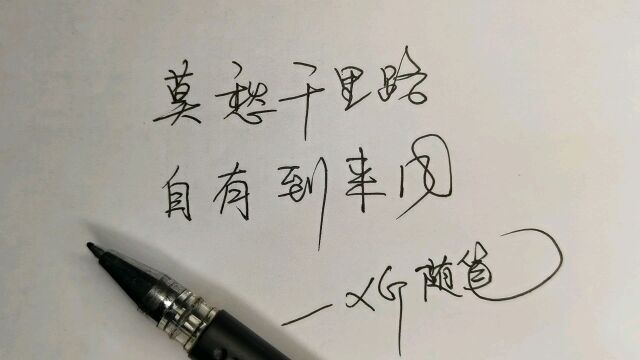 莫愁千里路
自有到来风
—XG随笔